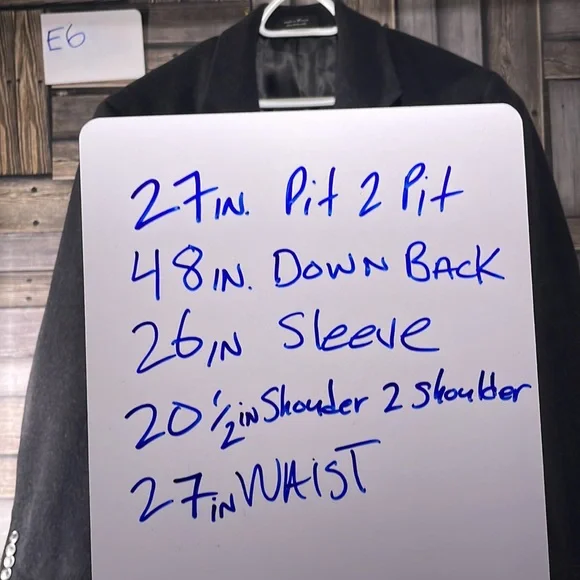 E6
27in. Pit 2 Pit
48in. Down Back
26in Sleeve
20 1/2in Shouder 2 Shoulder
27in WAIST